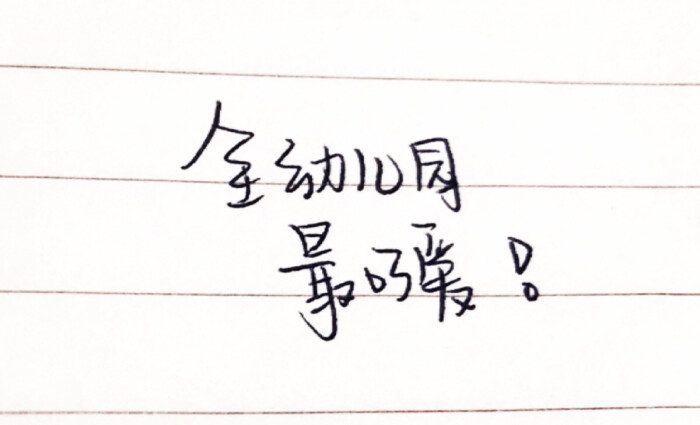 全幼儿园
最可爱！